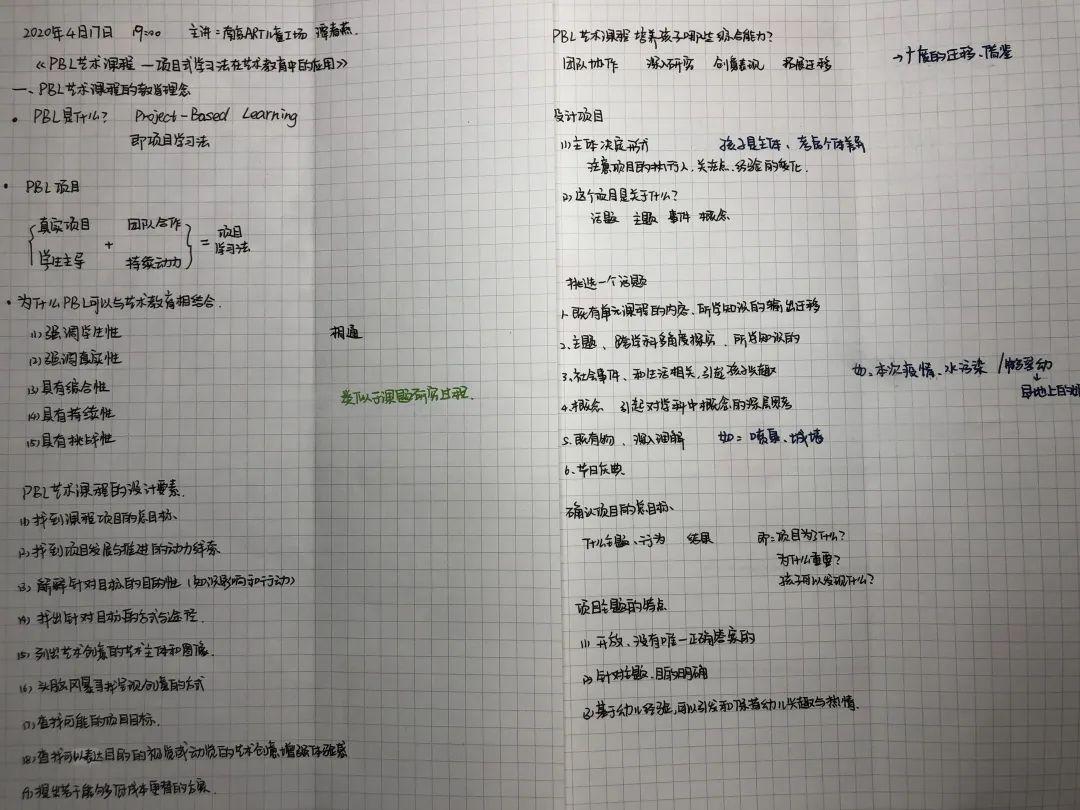 2020年4月17日 19:00 主讲:南京ART儿童工场 谭春燕.
《PBL艺术课程—项目式学习法在艺术教育中的应用》
一、PBL艺术课程的教学理念
• PBL是什么? Project-Based Learning
即项目学习法
• PBL项目
真实项目 团队合作
+ = 项目学习法
学生主导 持续动力
• 为什么PBL可以与艺术教育相结合.
(1)强调学生性 相通
(2)强调真实性
(3)具有综合性 类似于课题研究过程.
(4)具有持续性
(5)具有挑战性
PBL艺术课程的设计要素.
(1)找到课程项目的总目标、
(2)找到项目发展与推进的动力线索
(3)解解针对目标的目的性(知识影响和行动)
(4)找出针对目标的方式与途径.
(5)列出艺术创意的艺术主体和图像.
(6)头脑风暴寻找呈现创意的方式
(7)查找可能的项目目标.
(8)查找可以表达目的的视觉或动觉的艺术创意,增强体验感
(9)提出若干能够低成本更替的方案.
PBL艺术课程培养孩子哪些综合能力?
团队协作 深入研究 创意表现 拓展迁移 →广度的迁移、借鉴
设计项目
(1)主体决定形式 孩子是主体、考虑个体差异
注意项目的执行人、关注点、经验的变化.
(2)这个项目是关于什么?
话题 主题 事件 概念
挑选一个话题
1、既有单元课程的内容、所学知识的输出迁移
2、主题、跨学科多角度探究、所学知识的
3、社会事件、和生活相关,引起孩子兴趣 如:本次疫情、水污染/
4、概念 引起对学科中概念的深层思考
5、既有的物、深入理解 如:喷泉、城墙
6、节日庆典
确认项目的总目标、
什么主题、行为 结果 即:项目为了什么?
为什么重要?
孩子可以发现什么?
项目主题的特点
(1)开放、没有唯一正确答案的
(2)针对主题、目的明确
(3)基于幼儿经验,可以引发和保持幼儿兴趣与热情.